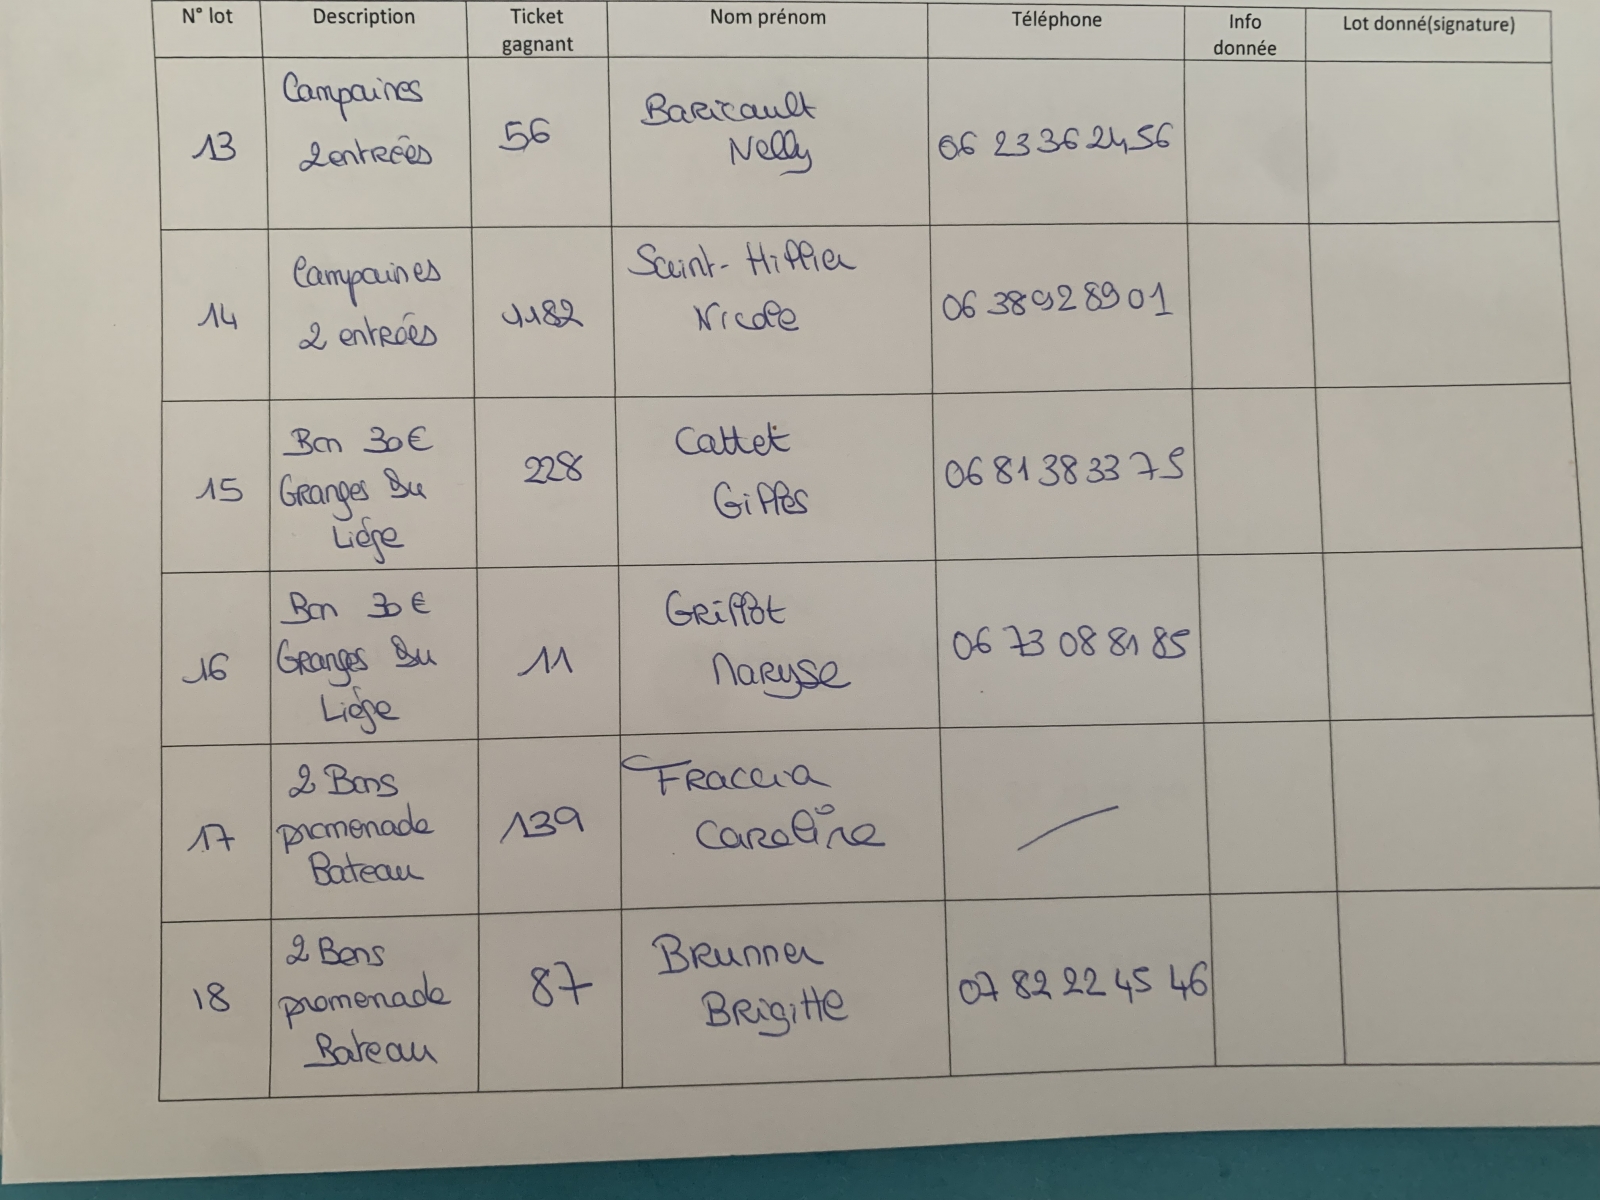 N° lot Description Ticket gagnant Nom prénom Téléphone Info donnée Lot donné(signature)
13 Campaines 2 entrées 56 Baricault Nelly 06 23 36 24 56
14 Campaines 2 entrées 1182 Saint-Hillier Nicole 06 38 92 89 01
15 Bon 30€ Granges Du Liège 228 Cattet Gilles 06 81 38 33 75
16 Bon 30€ Granges Du Liège 11 Grillot Maryse 06 73 08 81 85
17 2 Bons promenade Bateau 139 Fraccia Caroline
18 2 Bons promenade Bateau 87 Brunner Brigitte 07 82 22 45 46